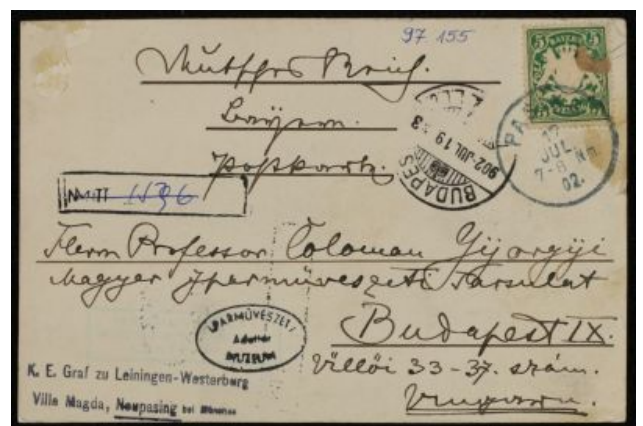 97.155
Deutsches Reich.
Bayern.
Postkarte.
5 BAYERN 5
BUDAPEST
902 JUL 19
PA
JUL
7-8 Nm
02.
1896
Herrn Professor Coloman Györgyi
Magyar Iparművészeti Társulat
Budapest IX.
Üllői 33-37. szám.
Ungarn.
IPARMŰVÉSZETI
Adattár
MUZEUM
K. E. Graf zu Leiningen-Westerburg
Villa Magda, Neupasing bei München